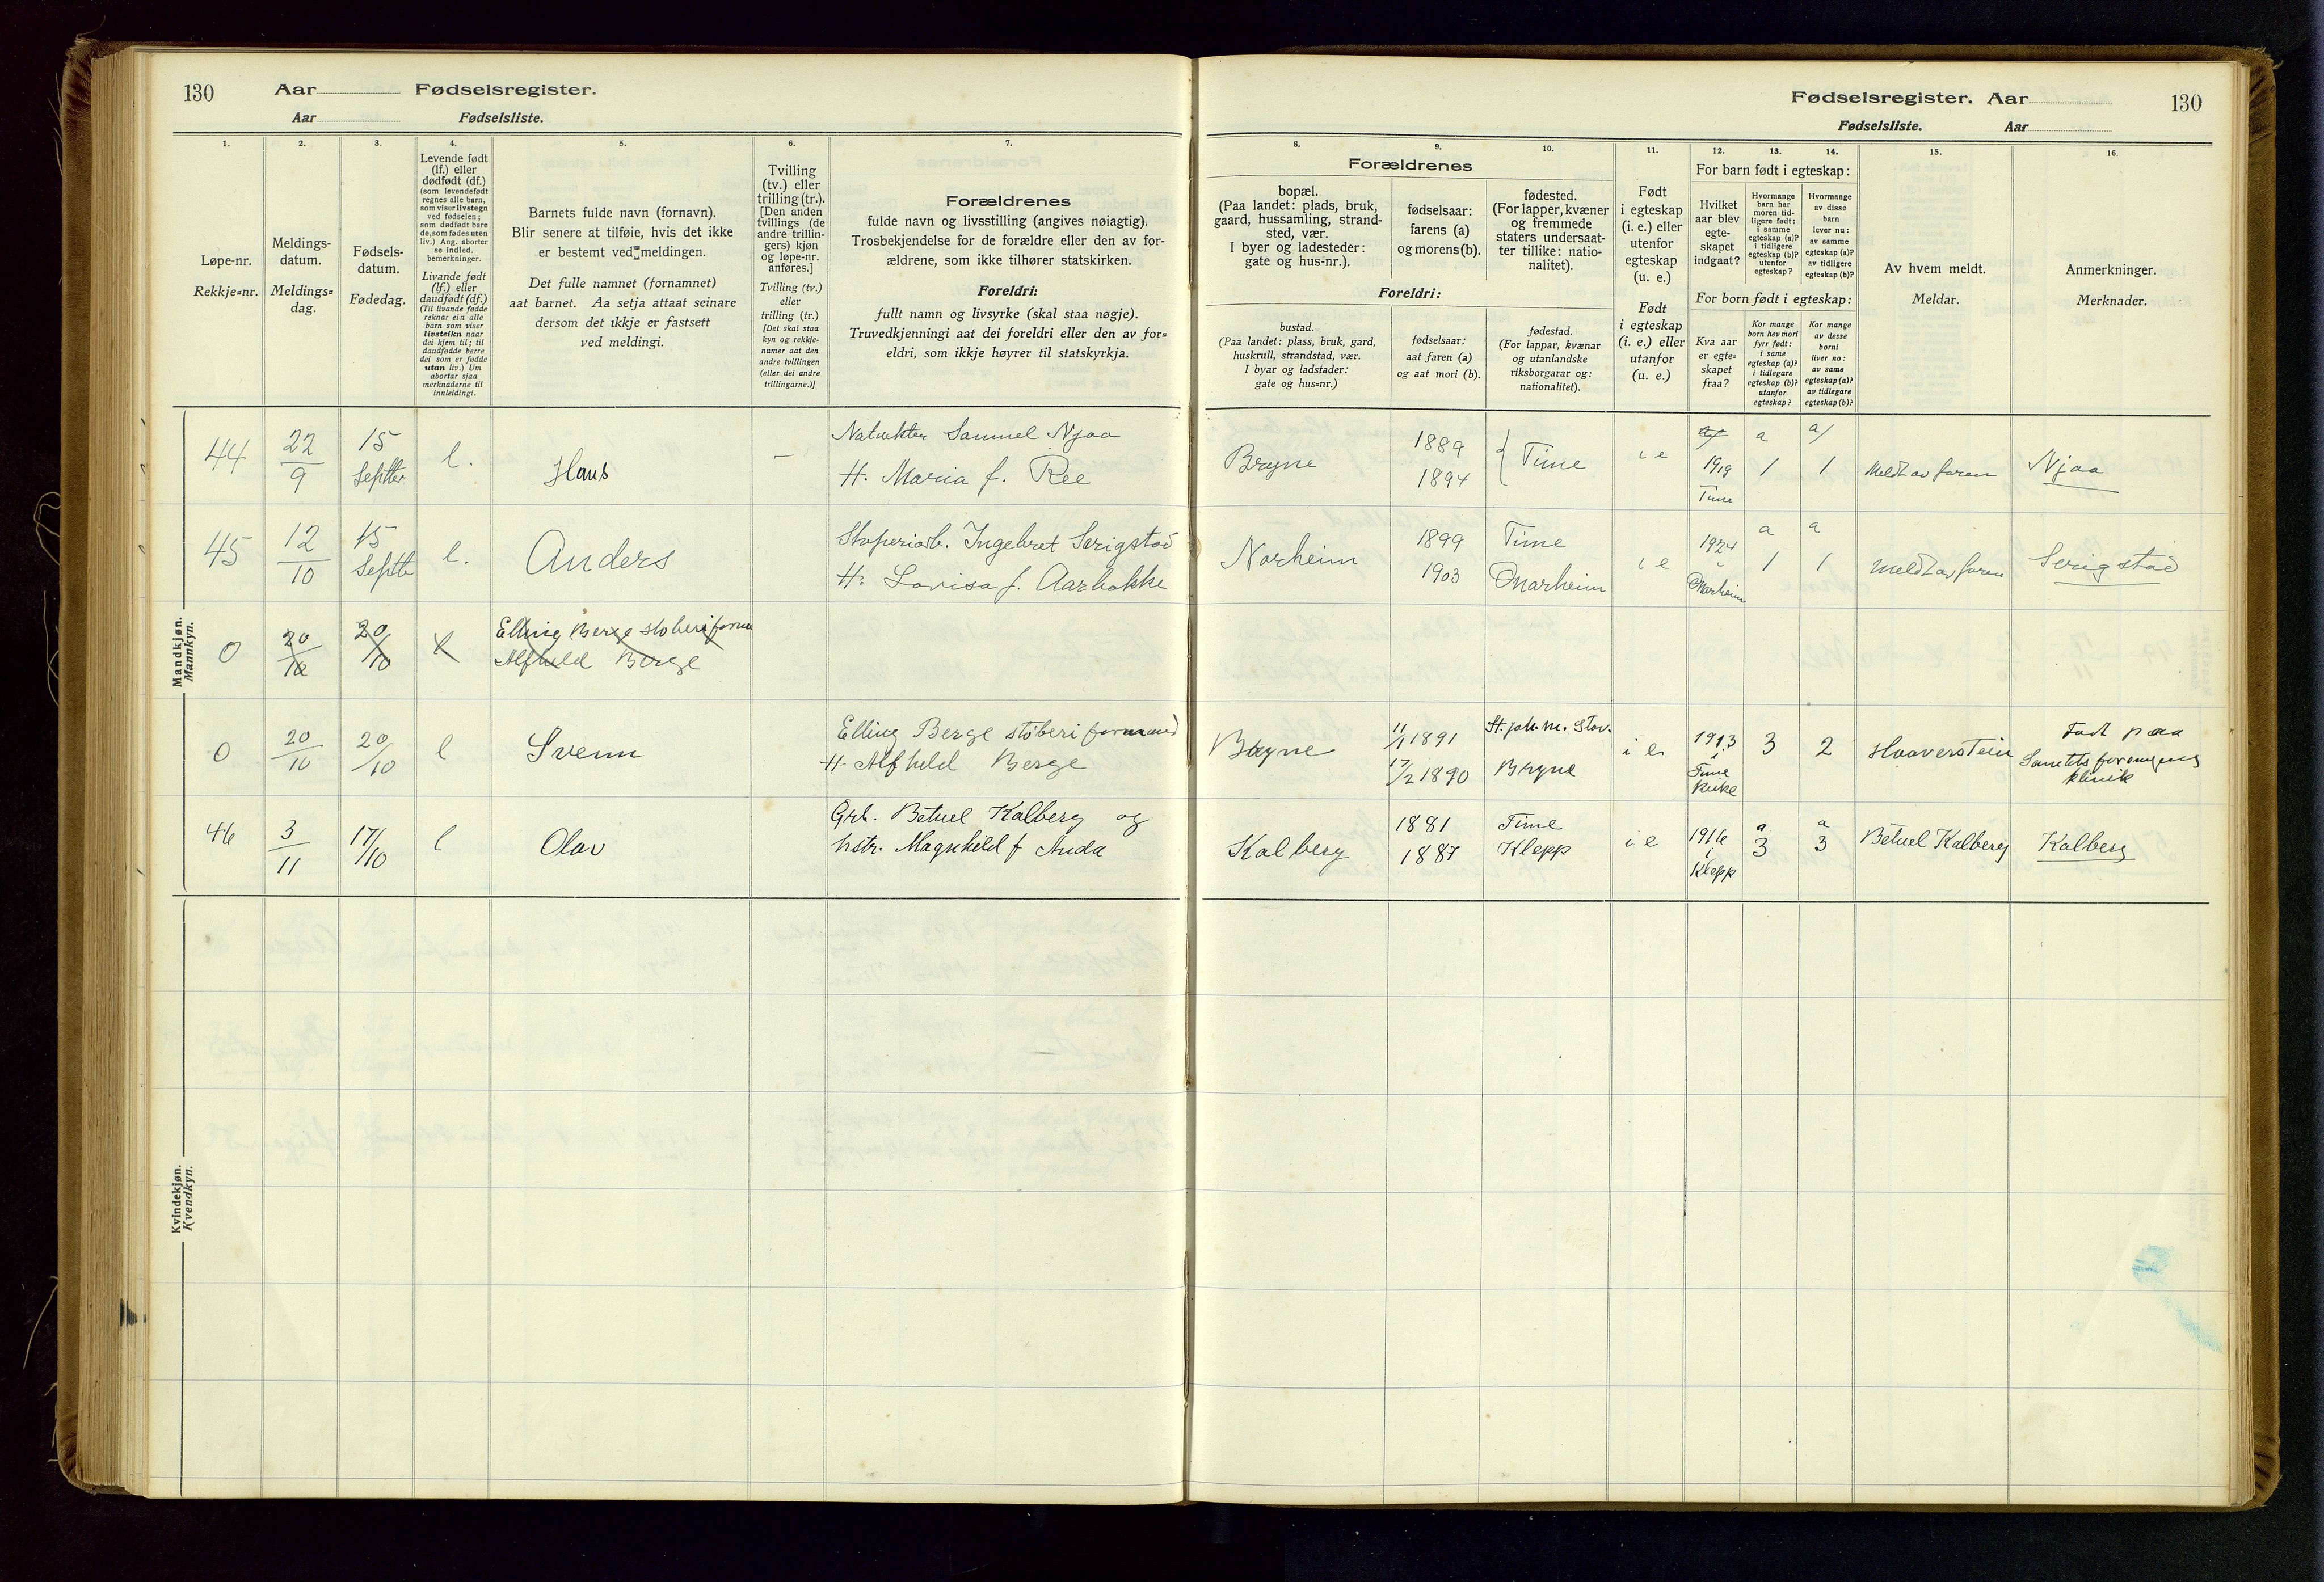 130 Aar Fødselsregister.
Aar Fødselsliste.
Fødselsregister. Aar 130
Fødselsliste. Aar
1.
Løpe-nr.
Rekkje=nr.
2.
Meldings-
datum.
Meldings=
dag.
3.
Fødsels-
datum.
Fødedag.
4.
Levende født
(lf.) eller
dødfødt (df.)
(som levendefødt
regnes alle barn,
som viser livstegn
ved fødselen;
som dødfødt bare
de, som fødes uten
liv.) Ang. aborter
se indled.
bemerkninger.
Livande født
(lf.) eller
daudfødt (df.)
(Til livande fødde
reknar ein alle
barn som viser
livsteikn naar
dei kjem til; til
daudfødde berre
dei som er fødde
utan liv.) Um
abortar sjaa
merknaderne til
innleidingi.
5.
Barnets fulde navn (fornavn).
Blir senere at tilføie, hvis det ikke
er bestemt ved meldingen.
Det fulle namnet (fornamnet)
aat barnet. Aa setja attaat seinare
dersom det ikkje er fastsett
ved meldingi.
6.
Tvilling
(tv.) eller
trilling (tr.).
[Den anden
tvillings (de
andre trillin-
gers) kjøn
og løpe-nr.
anføres.]
Tvilling (tv.)
eller
trilling (tr.)
[Det skal staa
kyn og rekkje-
numer aat den
andre tvillingen
(eller dei andre
trillingarne.)]
7.
Forældrenes
fulde navn og livsstilling (angives nøiagtig).
Trosbekjendelse for de forældre eller den av for-
ældrene, som ikke tilhører statskirken.
Foreldri:
fullt namn og livsyrke (skal staa nøgje).
Truvedkjenningi aat dei foreldri eller den av for=
eldri, som ikkje høyrer til statskyrkja.
Forældrenes
8.
bopæl.
(Paa landet: plads, bruk,
gaard, hussamling, strand-
sted, vær.
I byer og ladesteder:
gate og hus-nr.).
9.
fødselsaar:
farens (a)
og morens (b).
10.
fødested.
(For lapper, kvæner
og fremmede
staters undersaat-
ter tillike: natio-
nalitet).
Foreldri:
bustad.
(Paa landet: plass, bruk, gard,
huskrull, strandstad, vær.
I byar og ladstader:
gate og hus=nr.)
fødselsaar:
aat faren (a)
og aat mori (b).
fødestad.
(For lappar, kvænar
og utanlandske
riksborgarar og:
nationalitet).
11.
Født
i egteskap
(i. e.) eller
utenfor
egteskap
(u. e.)
Født
i egteskap
(i. e.) eller
utanfor
(u. e.)
12. 13. 14.
For barn født i egteskap:
Hvilket
aar blev
egte-
skapet
indgaat?
Hvormange
barn har
moren tid-
ligere født:
i samme
egteskap (a)?
i tidligere
egteskap (b)?
utenfor
egteskap?
Hvormange
av disse
barn
lever nu:
av samme
egteskap (a)?
av tidligere
egteskap (b)?
For born født i egteskap:
Kva aar
er egte-
skapet
fraa?
Kor mange
born hev mori
fyrr født:
i same
egteskap (a)?
i tidlegare
egteskap (b)?
utanfor
egteskap?
Kor mange
av desse
borni
liver no:
av same
egteskap (a)?
av tidlegare
egteskap (b)?
15.
Av hvem meldt.
Meldar.
16.
Anmerkninger.
Merknader.
Mandkjøn.
Mannkyn.
44 22/9 15 Septbr l. Hans —
Samuel Njaa
H. Maria f. Ree
Bryne 1889 1894 Time i e a/ 1919 Time a 1 a/ 1 Meldt av faren Njaa
45 12/10 15 Septb l. Anders
Ingebret Serigstad
H. Lovisa f. Aarbakke
Norheim 1899 1903 Time Marheim i e 1924 i Marheim a 1 a 1 Meldt av faren Serigstad
0 20/10 20/10 l Elling Berge støberiform
Alfheld Berge
0 20/10 20/10 l Svenn
Elling Berge støberi formand
H. Alfheld Berge
Bryne 11/1 1891 17/2 1890 St. joh. m. Stav. Bryne i e 1913 i Time Kirke 3 2 Haaverstein Født paa
Sanitetsforenigens
klinik
46 3/11 17/10 l Olav
Grb. Betuel Kalberg og
hstr. Magnhild f Anda
Kalberg 1881 1887 Time Klepp i e 1916 i Klepp a 3 a 3 Betuel Kalberg Kalberg
Kvindekjøn.
Kvendkyn.